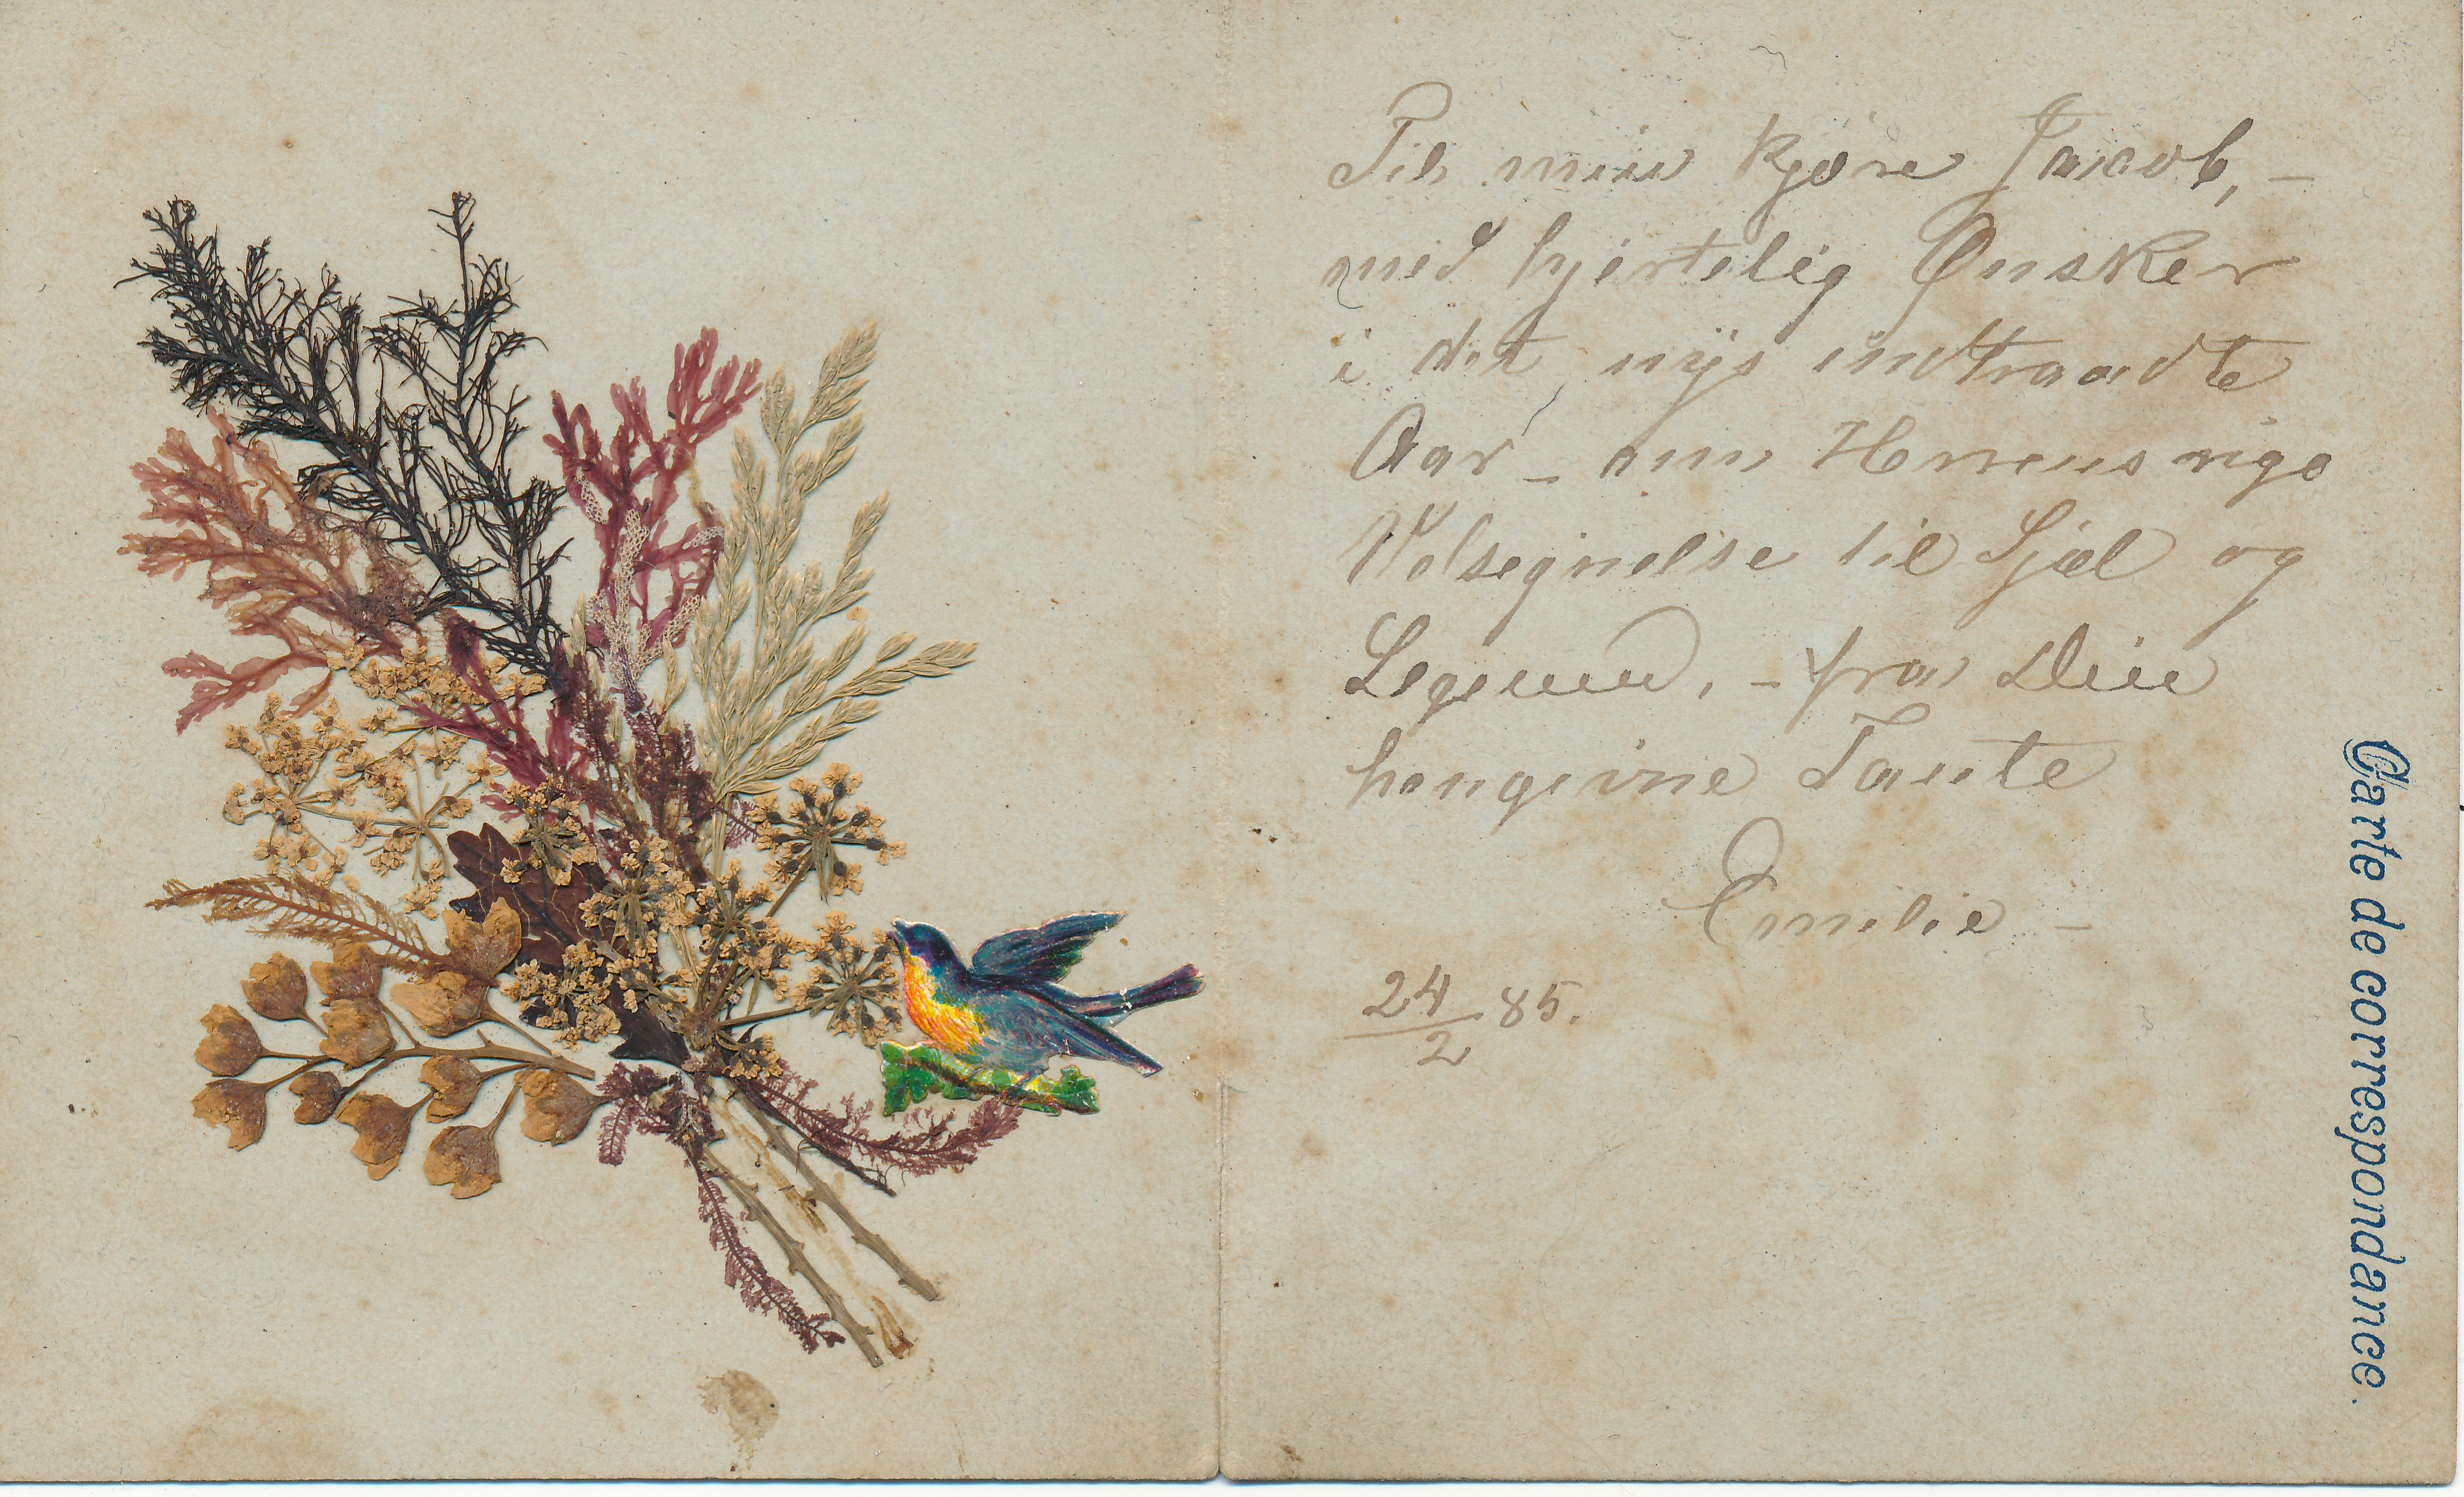 Til min kjære Jacob, —
med hjertelig Ønsker
i det nys indtraadte
Aar — om Herrens rige
Velsignelse til Sjæl og
Legeme, — fra Din
hengivne Tante
Emilie —
24/2 85.
Carte de correspondance.